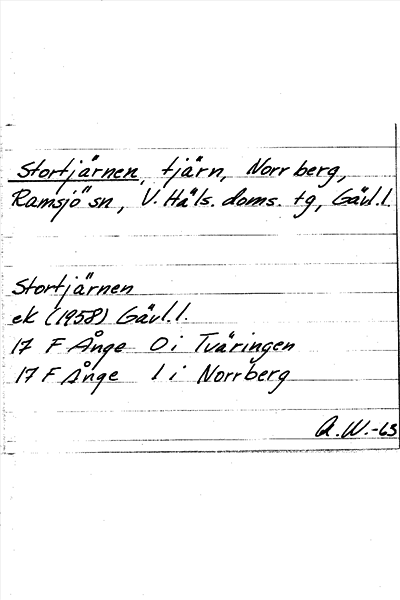 Stortjärnen, tjärn, Norrberg,
Ramsjö sn, V. Häls. doms. tg, Gävl. l.
Stortjärnen
ek (1958) Gävl. l.
17 F Ånge 0 i Tväringen
17 F Ånge 1 i Norrberg
A.W.-63